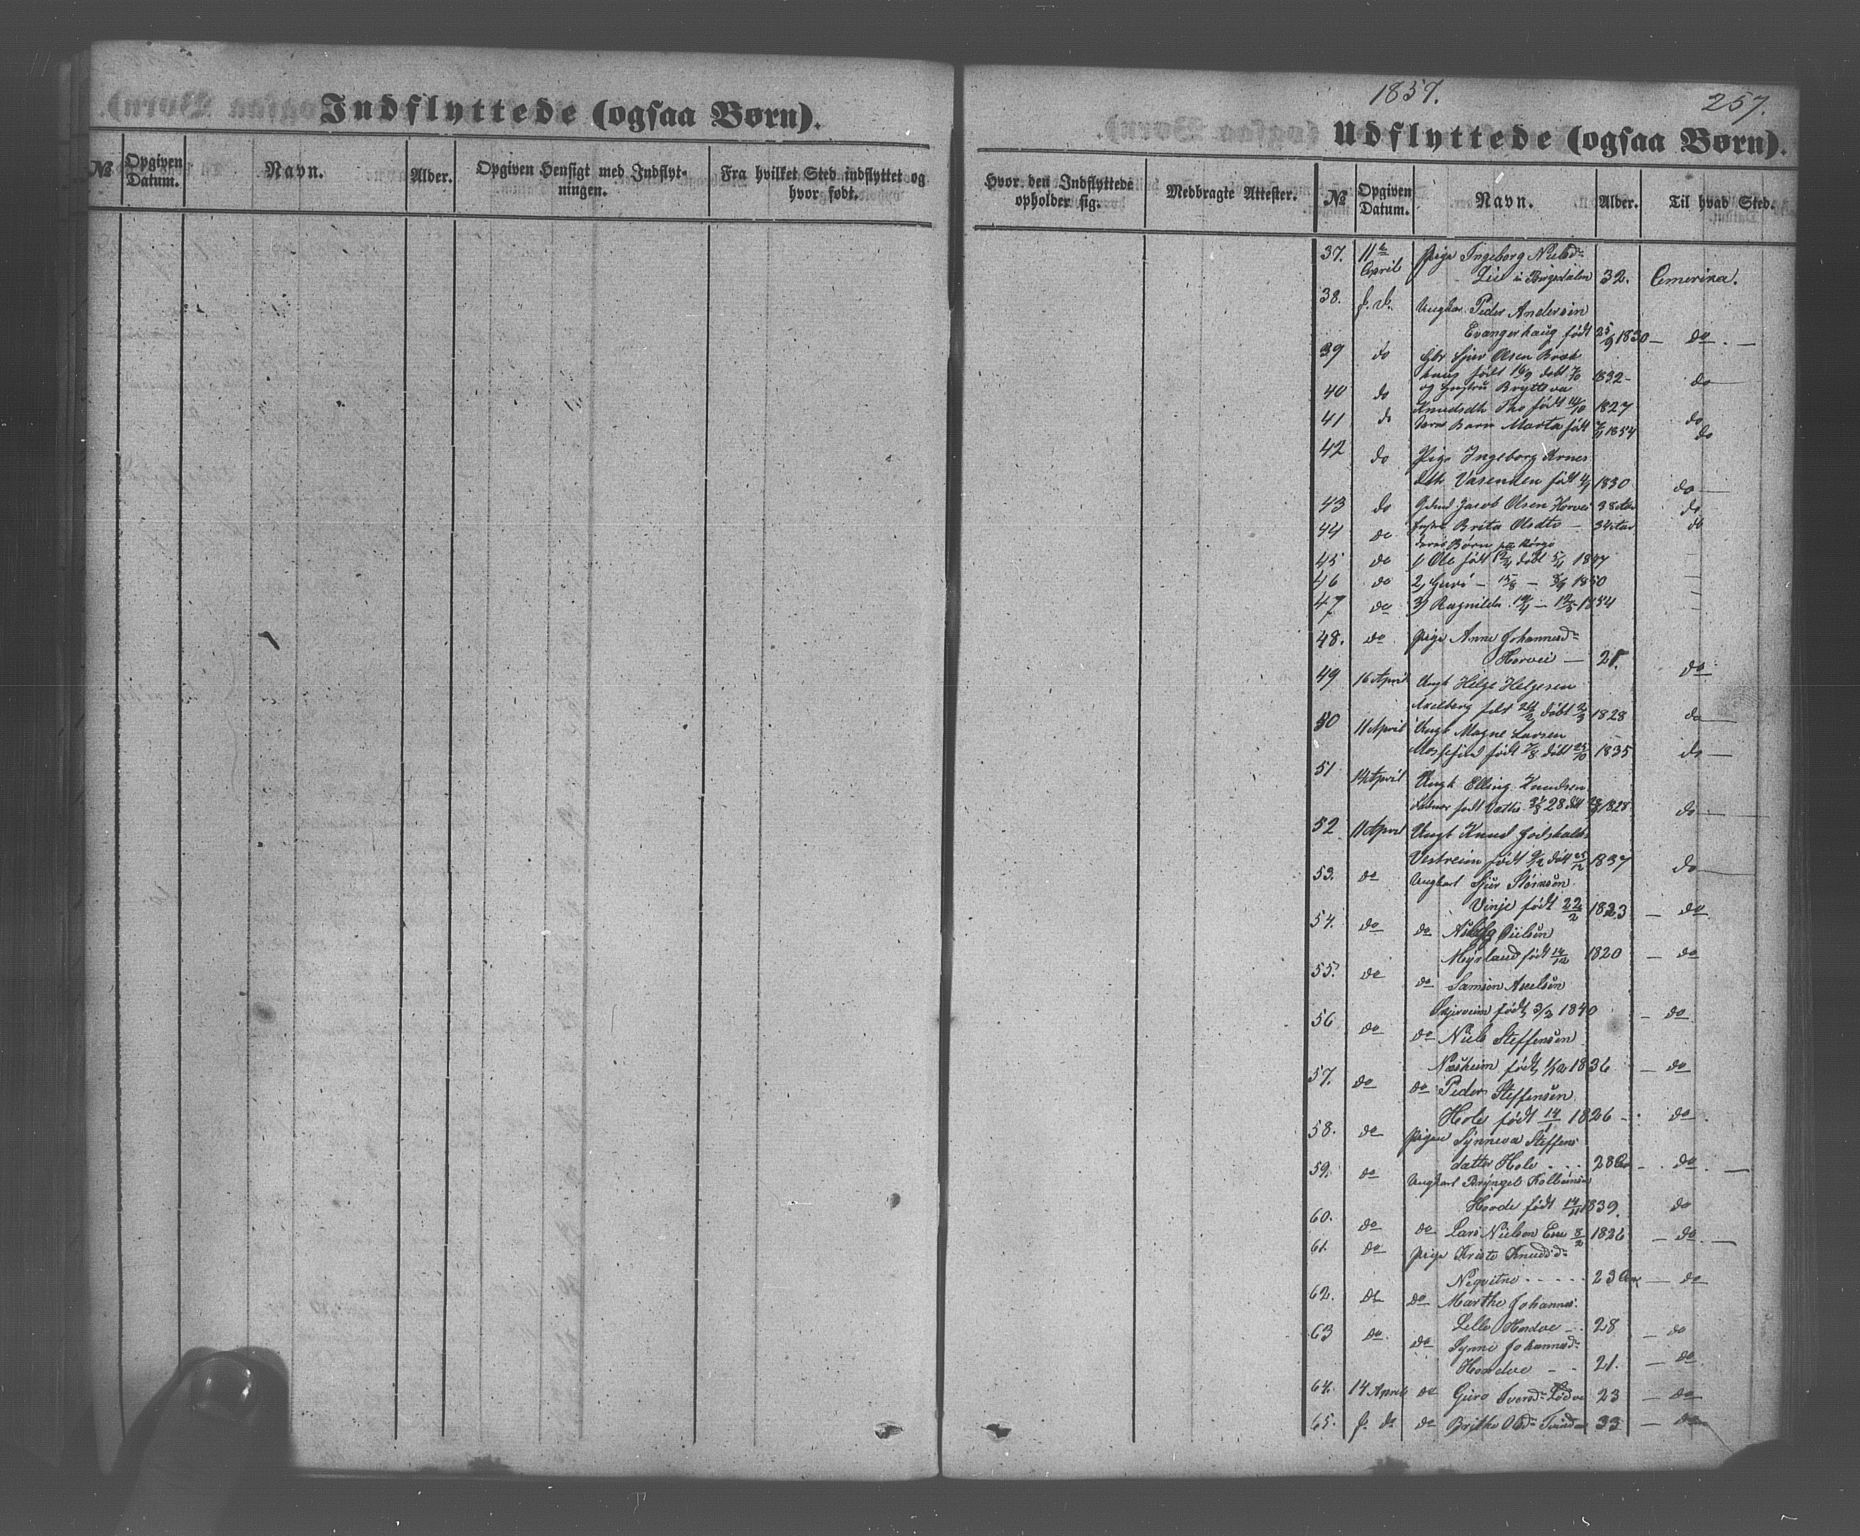 Indflyttede (ogsaa Børn).
№ Opgiven Datum. Navn. Alder. Opgiven Hensigt med Indflytningen. Fra hvilket Sted indflyttet og hvor født.
1857. 257.
Udflyttede (ogsaa Børn).
Hvor den Indflyttede opholder sig. Medbragte Attester. № Opgiven Datum. Navn. Alder. Til hvad Sted.
37. 11te April Pige Ingeborg Nielsd
Lie i Bergsdalen 32. Amerika.
38. f. d. Ungkar Peder Andersen
Evangerhaug født 1830 — do —
39 do Sjur Olsen
født 16/9 døbt 1832 — do
40 do og Hustru Brytteva
Knudsdtr født 14/10 1827 do
41 do Barn Marta født 1854 do
42 do Pige Ingeborg Arnes
dtr Vasenden født 1830 do
43 do Jacob Olsen Horvei 38 Aar do
44 do Brita Olsdtr — 34 Aar do
deres Børn
45 do 1 Ole født døbt 5/4 1847
46 do 2, Guri — 15/8 — 1850
47 do 3) Ragnilda — 1854
48. do Pige Anne Johannesd
Horvei — 21. do
49 16 April Ungk Helge Helgesen
født døbt 2/3 1828 do
50 11 April Ungk Magne Larsen
Mosfjeld født døbt 25/10 1835 do
51 14 April Ungk Elling Knudsen
født 28 1828 do
52 11 April Ungk Knud Godskalks
Vestreim født døbt 1837 do
53. do Ungkarl Sjur
Vinje født 22/2 1823 — do
54. do do Nielsen
Myrland født 14/12 1820 — do
55. do do Samson Axelsen
Skjerveim født 3/2 1840 — do
56 do do Niels Steffensen
Næsheim født 1/12 1836 — do
57. do do Peder Steffensen
Hole født 14/1 1826 — do
58. do Pigen Synneva Steffens
datter Hole 28 Aar — do —
59. do Ungkarl Bryngel Kolbeinsen
født 1839. do
60. do do Lars Nielsen 8/2 1826 — do —
61. do Pige Knudsd
23 Aar — do
62. do do Marthe Johannes
Lille 28 — do
63 do. do Synne Johannesd
21. — do
64. 14 April do Guro Iversd 23 — do
65. f. do do Brithe Olsd 33 — do